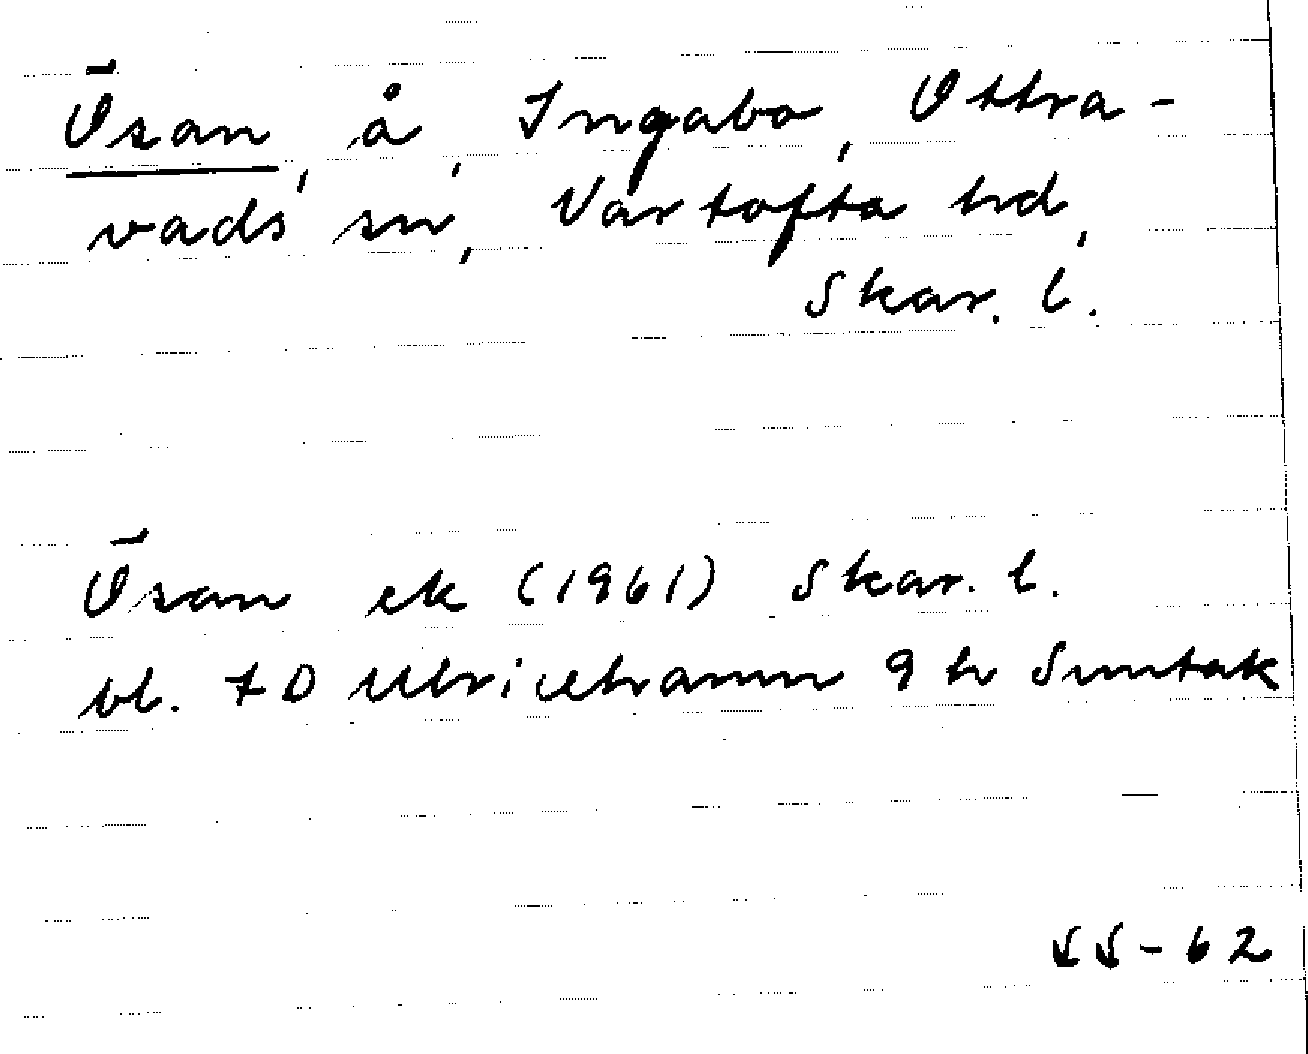 Ösan, å, Ingabo, Ottra-
vads sn, Vartofta hd,
Skar. l.
Ösan ek (1961) Skar. l.
bl. 7D Ulricehamn 9 h Suntak
SS-62